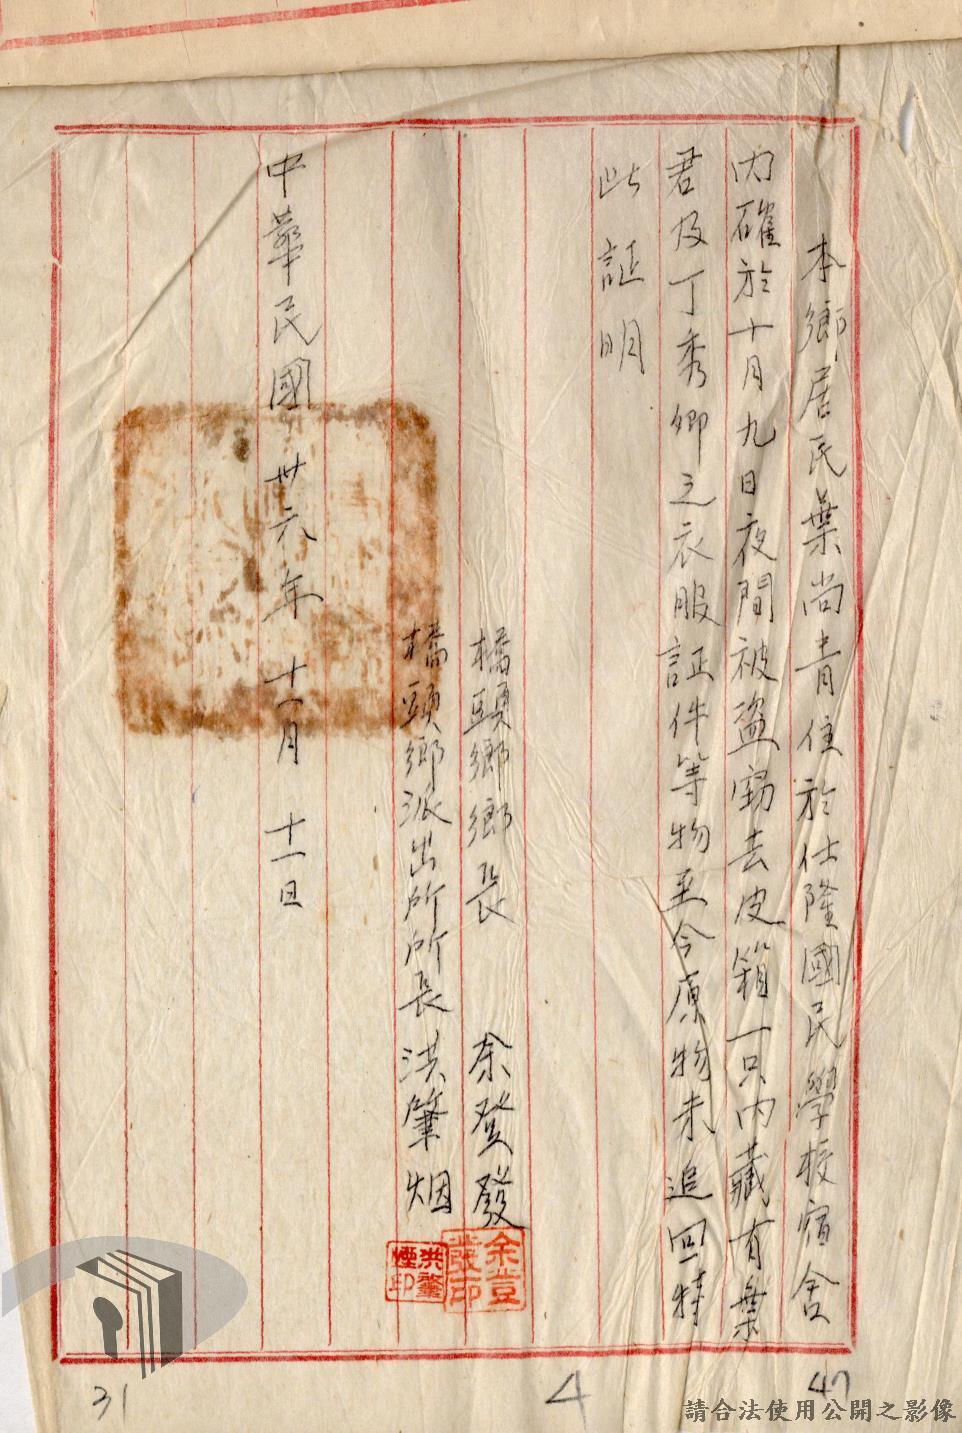 本鄉居民葉尚青住於仕隆國民學校宿舍
內確於十月九日夜間被盜竊去皮箱一只內藏有葉
君及丁秀卿之衣服証件等物至今原物未追回特
此証明
橋頭鄉鄉長 余登發
橋頭鄉派出所所長洪肇烟
余登發印
洪肇煙印
中華民國卅六年十一月十一日
31
4
47
請合法使用公開之影像